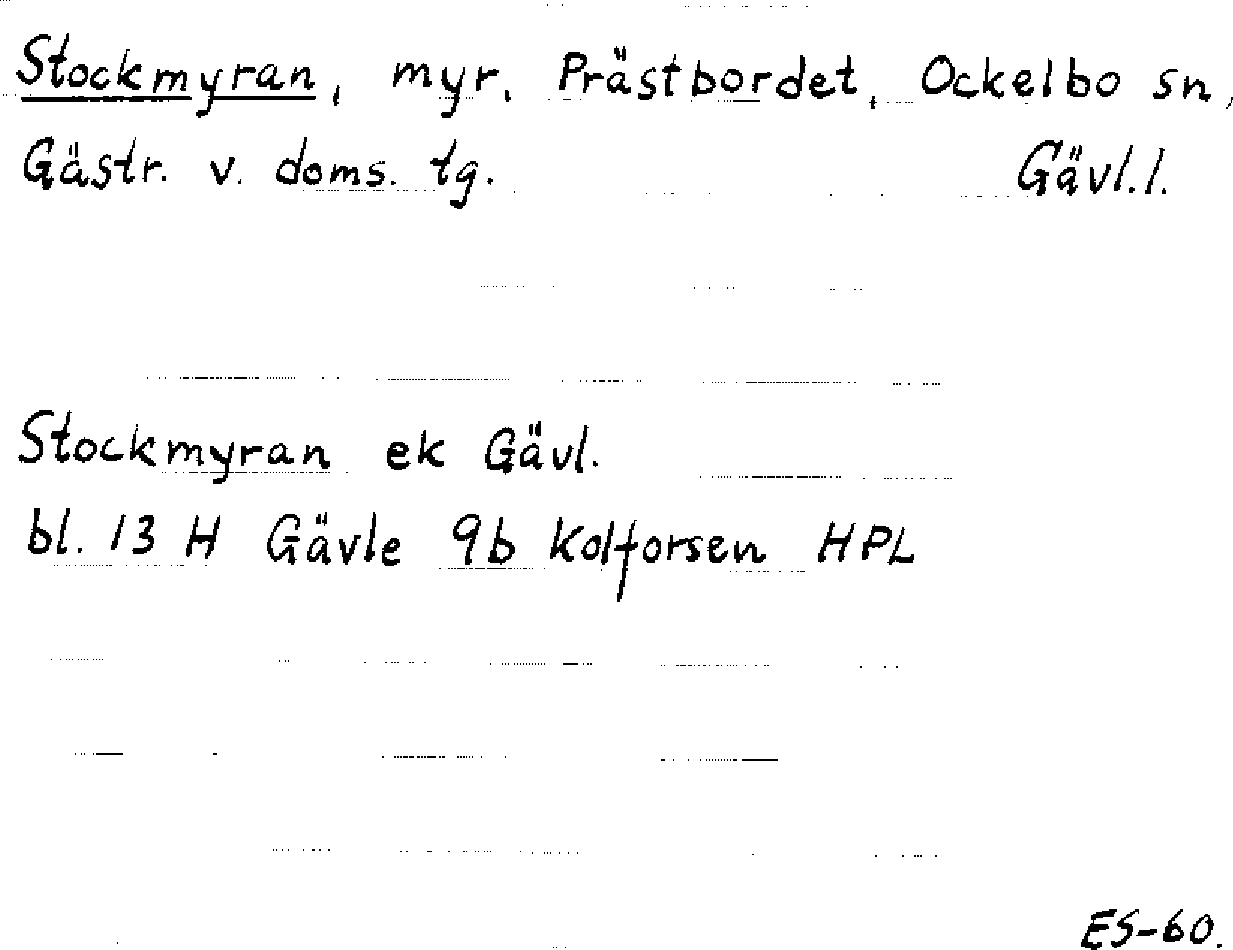 Stockmyran, myr, Prästbordet, Ockelbo sn,
Gästr. v. doms. tg. Gävl.l.
Stockmyran ek Gävl.
bl. 13 H Gävle 9b Kolforsen HPL
ES-60.